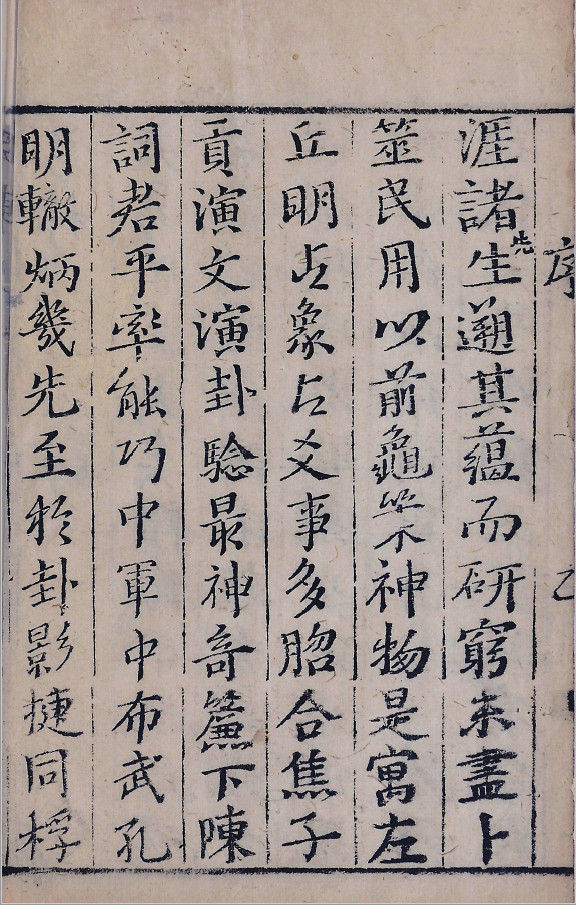 序
涯諸先生遡其蘊而研窮未盡卜
筮民用以前龜筴神物是寓左
丘明占象占爻事多脗合焦子
貢演文演卦騐最神奇簾下陳
詞君平率能巧中軍中布武孔
明轍炳幾先至扵卦影捷同桴